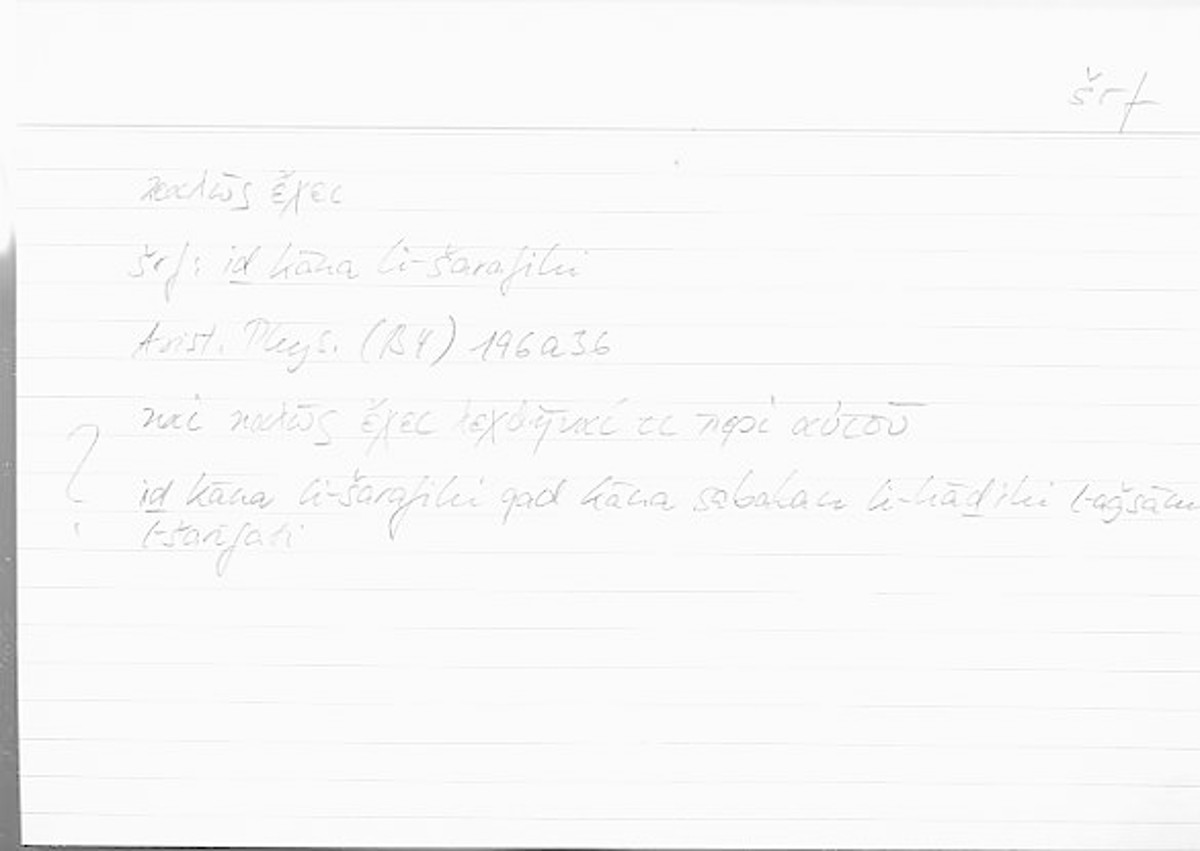 šrf
καλῶς ἔχει
šrf: iḏ kāna li-šarafihi
Arist. Phys. (B4) 196a36
καὶ καλῶς ἔχει λεχθῆναί τι περὶ αὐτοῦ
? iḏ kāna li-šarafihi qad kāna sababan li-hāḏihi l-aǧsām
l-šarīfati